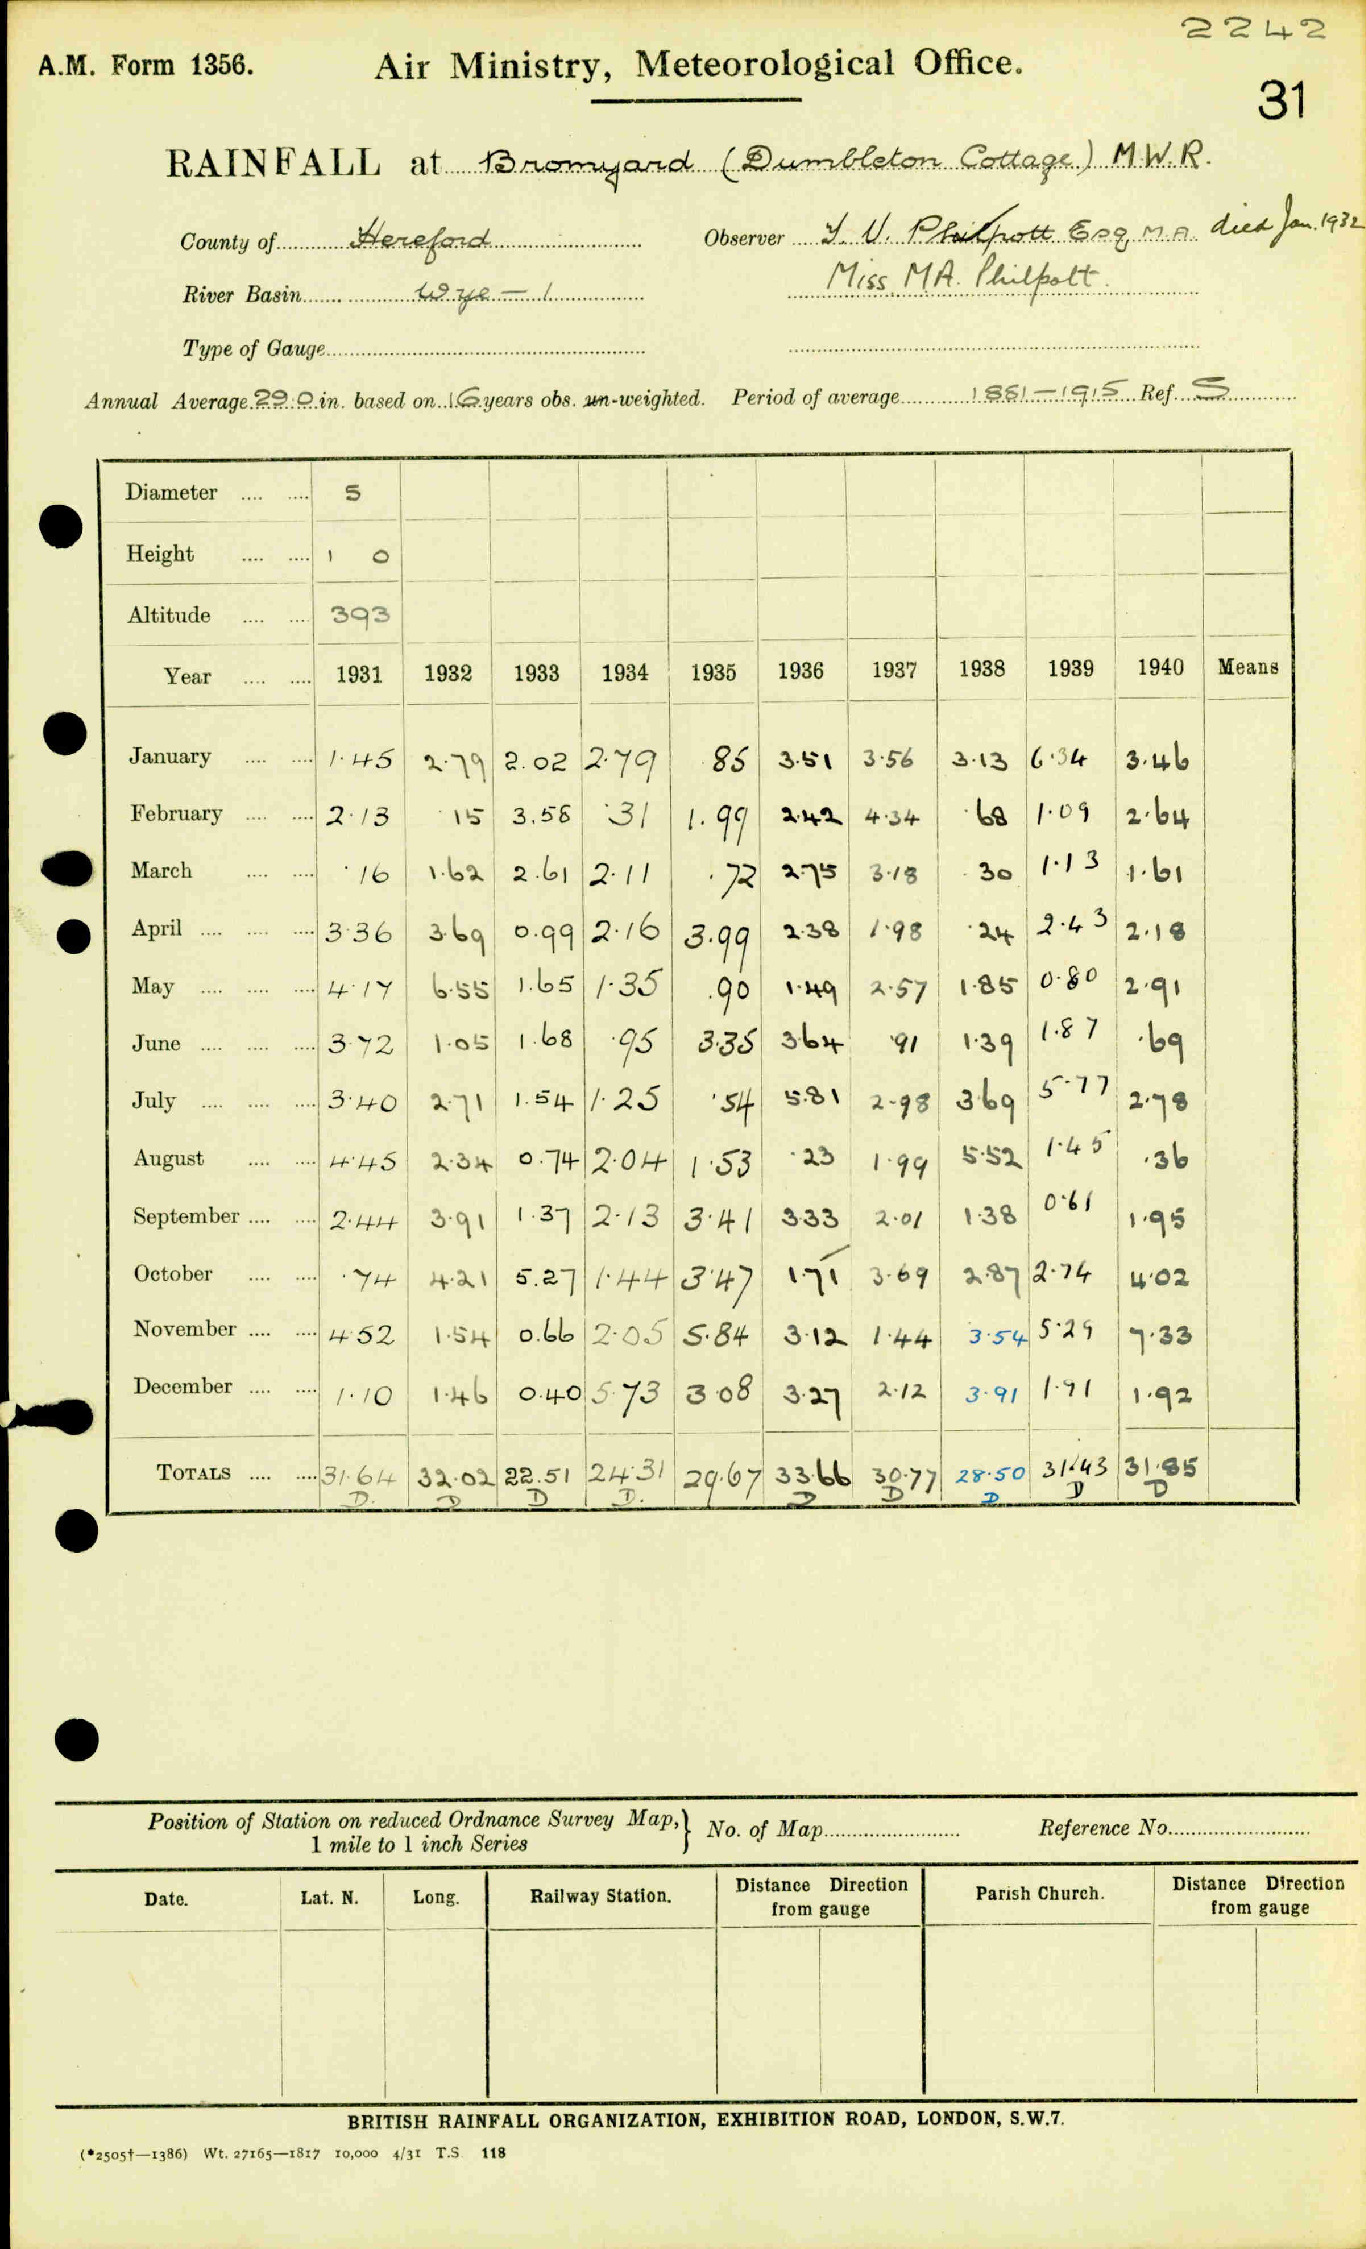 2242
A.M. Form 1356. Air Ministry, Meteorological Office.
31
RAINFALL at Bromyard (Dumbleton Cottage) M.W.R.
County of Hereford Observer Philpott Esq M.A. died Jan. 1932
River Basin Wye — 1 Miss M.A. Philpott.
Type of Gauge
Annual Average 29.0 in. based on 16 years obs. un-weighted. Period of average 1881—1915 Ref. S
Diameter .... .... 5
Height .... .... 1 0
Altitude .... .... 393
Year .... .... 1931 1932 1933 1934 1935 1936 1937 1938 1939 1940 Means
January .... .... 1.45 2.79 2.02 2.79 .85 3.51 3.56 3.13 6.34 3.46
February .... .... 2.13 .15 3.58 .31 1.99 2.42 4.34 .68 1.09 2.64
March .... .... .16 1.62 2.61 2.11 .72 2.75 3.18 .30 1.13 1.61
April .... .... .... 3.36 3.69 0.99 2.16 3.99 2.38 1.98 .24 2.43 2.18
May .... .... .... 4.17 6.55 1.65 1.35 .90 1.49 2.57 1.85 0.80 2.91
June .... .... .... 3.72 1.05 1.68 .95 3.35 3.64 .91 1.39 1.87 .69
July .... .... .... 3.40 2.71 1.54 1.25 .54 5.81 2.98 3.69 5.77 2.78
August .... .... 4.45 2.34 0.74 2.04 1.53 .23 1.99 5.52 1.45 .36
September .... .... 2.44 3.91 1.37 2.13 3.41 3.33 2.01 1.38 0.61 1.95
October .... .... .74 4.21 5.27 1.44 3.47 1.71 3.69 2.87 2.74 4.02
November .... .... 4.52 1.54 0.66 2.05 5.84 3.12 1.44 3.54 5.29 7.33
December .... .... 1.10 1.46 0.40 5.73 3.08 3.27 2.12 3.91 1.91 1.92
TOTALS .... .... 31.64 32.02 22.51 24.31 29.67 33.66 30.77 28.50 31.43 31.85
D. D D D. D D D D D
Position of Station on reduced Ordnance Survey Map,} No. of Map Reference No.
1 mile to 1 inch Series
Date. Lat. N. Long. Railway Station. Distance Direction from gauge Parish Church. Distance Direction from gauge
BRITISH RAINFALL ORGANIZATION, EXHIBITION ROAD, LONDON, S.W.7.
(*2505†—1386) Wt. 27165—1817 10,000 4/31 T.S. 118